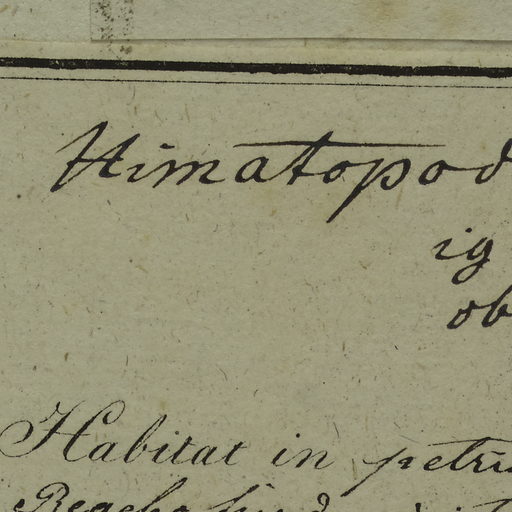 Himatopod
ig
ob
Habitat in petri